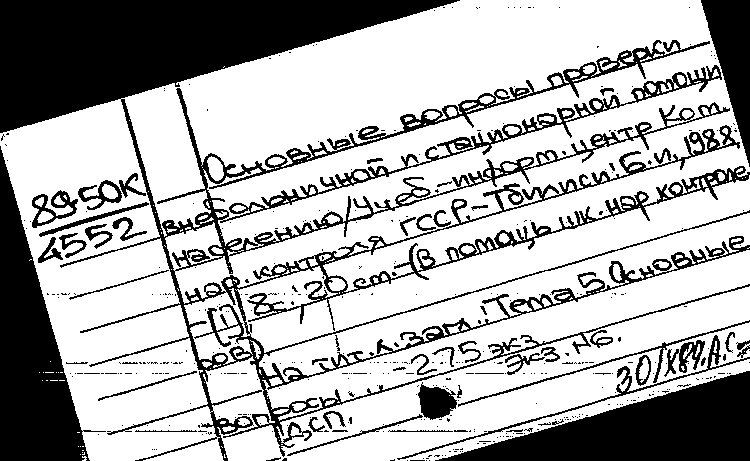 Основные вопросы проверки
внебольничной и стационарной помощи
89-50К
4552
населению/Учеб.-информ. центр Ком.
нар. контроля ГССР.-Тбилиси: Б.и., 1988,
-[1], 8с.; 20 см.-(В помощь шк. нар. контроле
ров).
На тит. л. загл.: Тема 5. Основные
вопросы... -275 экз.
ДСП. экз. №6.
30/X89. А.С=